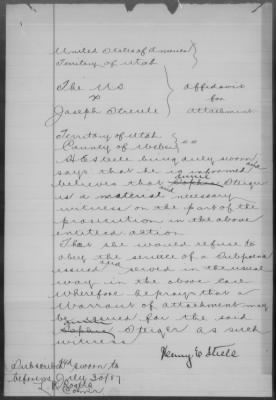 United States of America }
Territory of Utah
The US } Affidavit
v for
Joseph Steiule attachment
Territory of Utah }
County of Weber } ss
H E Steele being duly sworn
says that he is informed and
believes that Annie Steiger
is a material and necessary
witness on the part of the
prosecution in the above
entitled action
That she would refuse to
obey the service of a Subpoena
issued and served in the usual
way in the above case
Wherefore he prays that a
Warrant of attachment may
be issued for the said
Steiger as such
witness
Henry E Steele
Subscribed and sworn to
before me July 30/87
Rogers
Comr